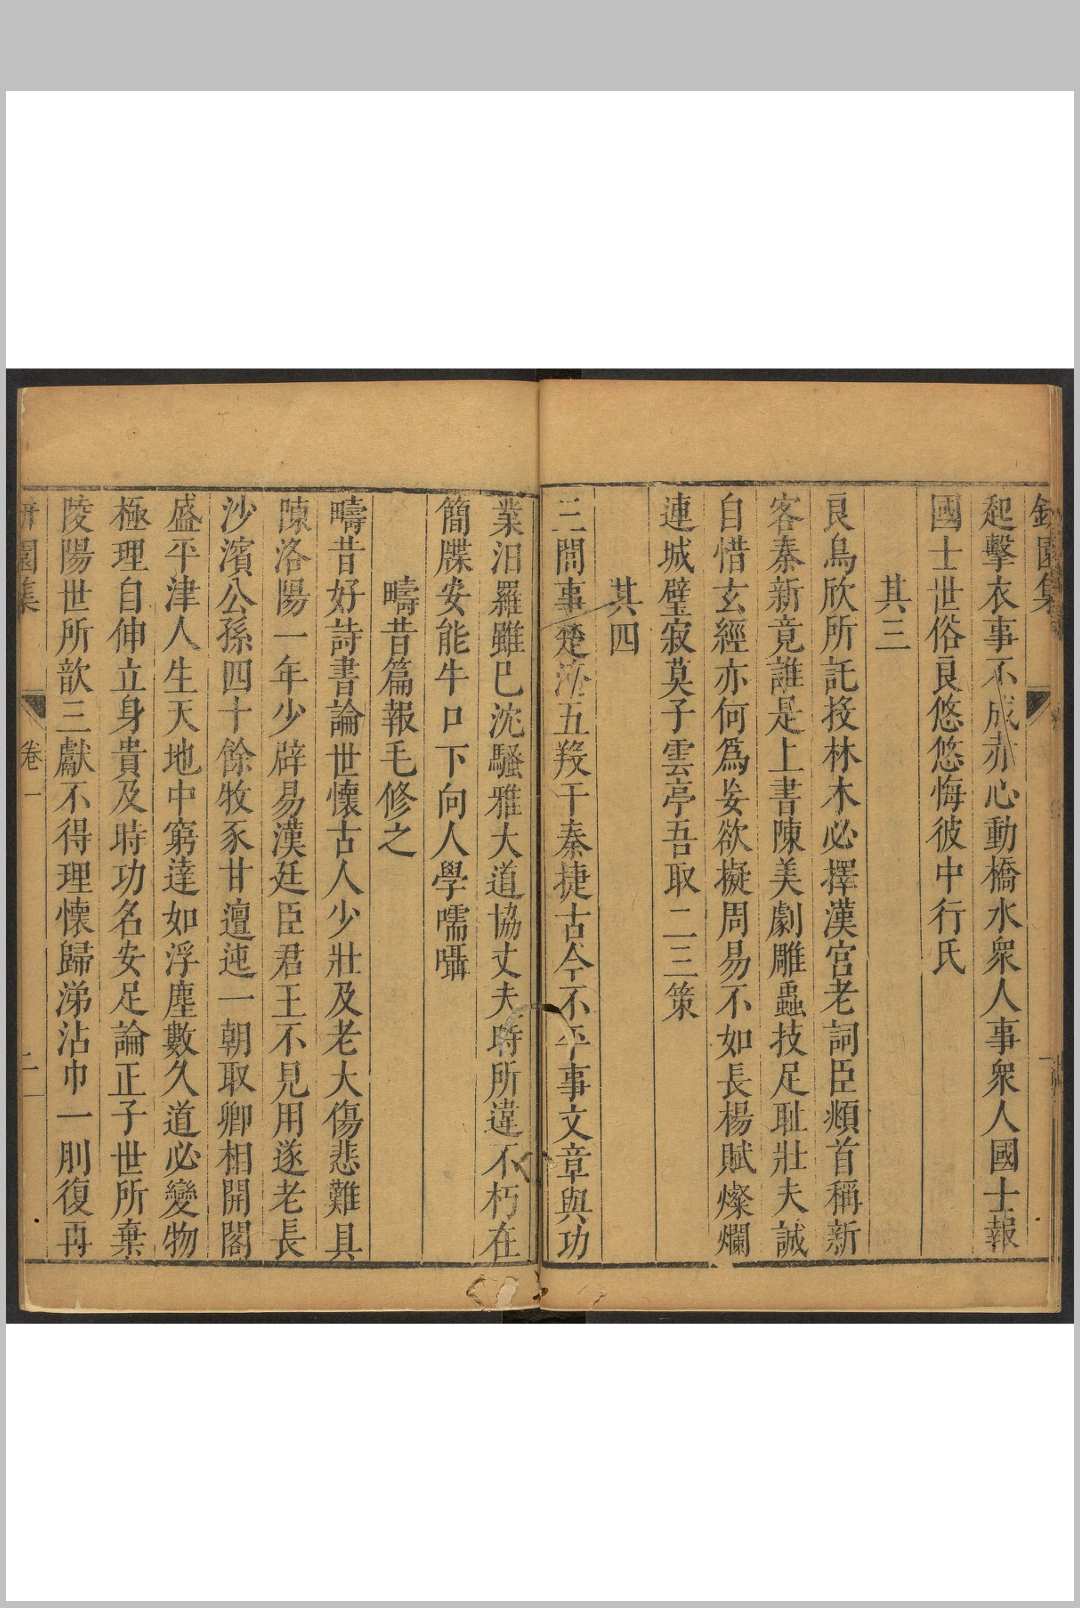 園集
起擊衣事不成赤心動橋水衆人事衆人國士報
國士世俗良悠悠悔彼中行氏
其三
良鳥欣所託投林木必擇漢宮老詞臣頫首稱新
客秦新竟誰是上書陳美劇雕蟲技足耻壯夫誠
自惜玄經亦何爲妄欲擬周易不如長楊賦燦爛
連城璧寂莫子雲亭吾取二三策
其四
三閭事楚沈五羖干秦捷古今不平事文章與功
業汨羅雖已沈騷雅大道協丈夫時所違不朽在
簡牒安能牛口下向人學嚅囁
疇昔篇報毛修之
疇昔好詩書論世懷古人少壯及老大傷悲難具
陳洛陽一年少辟易漢廷臣君王不見用遂老長
沙濱公孫四十餘牧豕甘邅迍一朝取卿相開閣
盛平津人生天地中窮達如浮塵數久道必變物
極理自伸立身貴及時功名安足論正子世所棄
陵陽世所歆三獻不得理懷歸涕沾巾一刖復再
園集
卷一
二